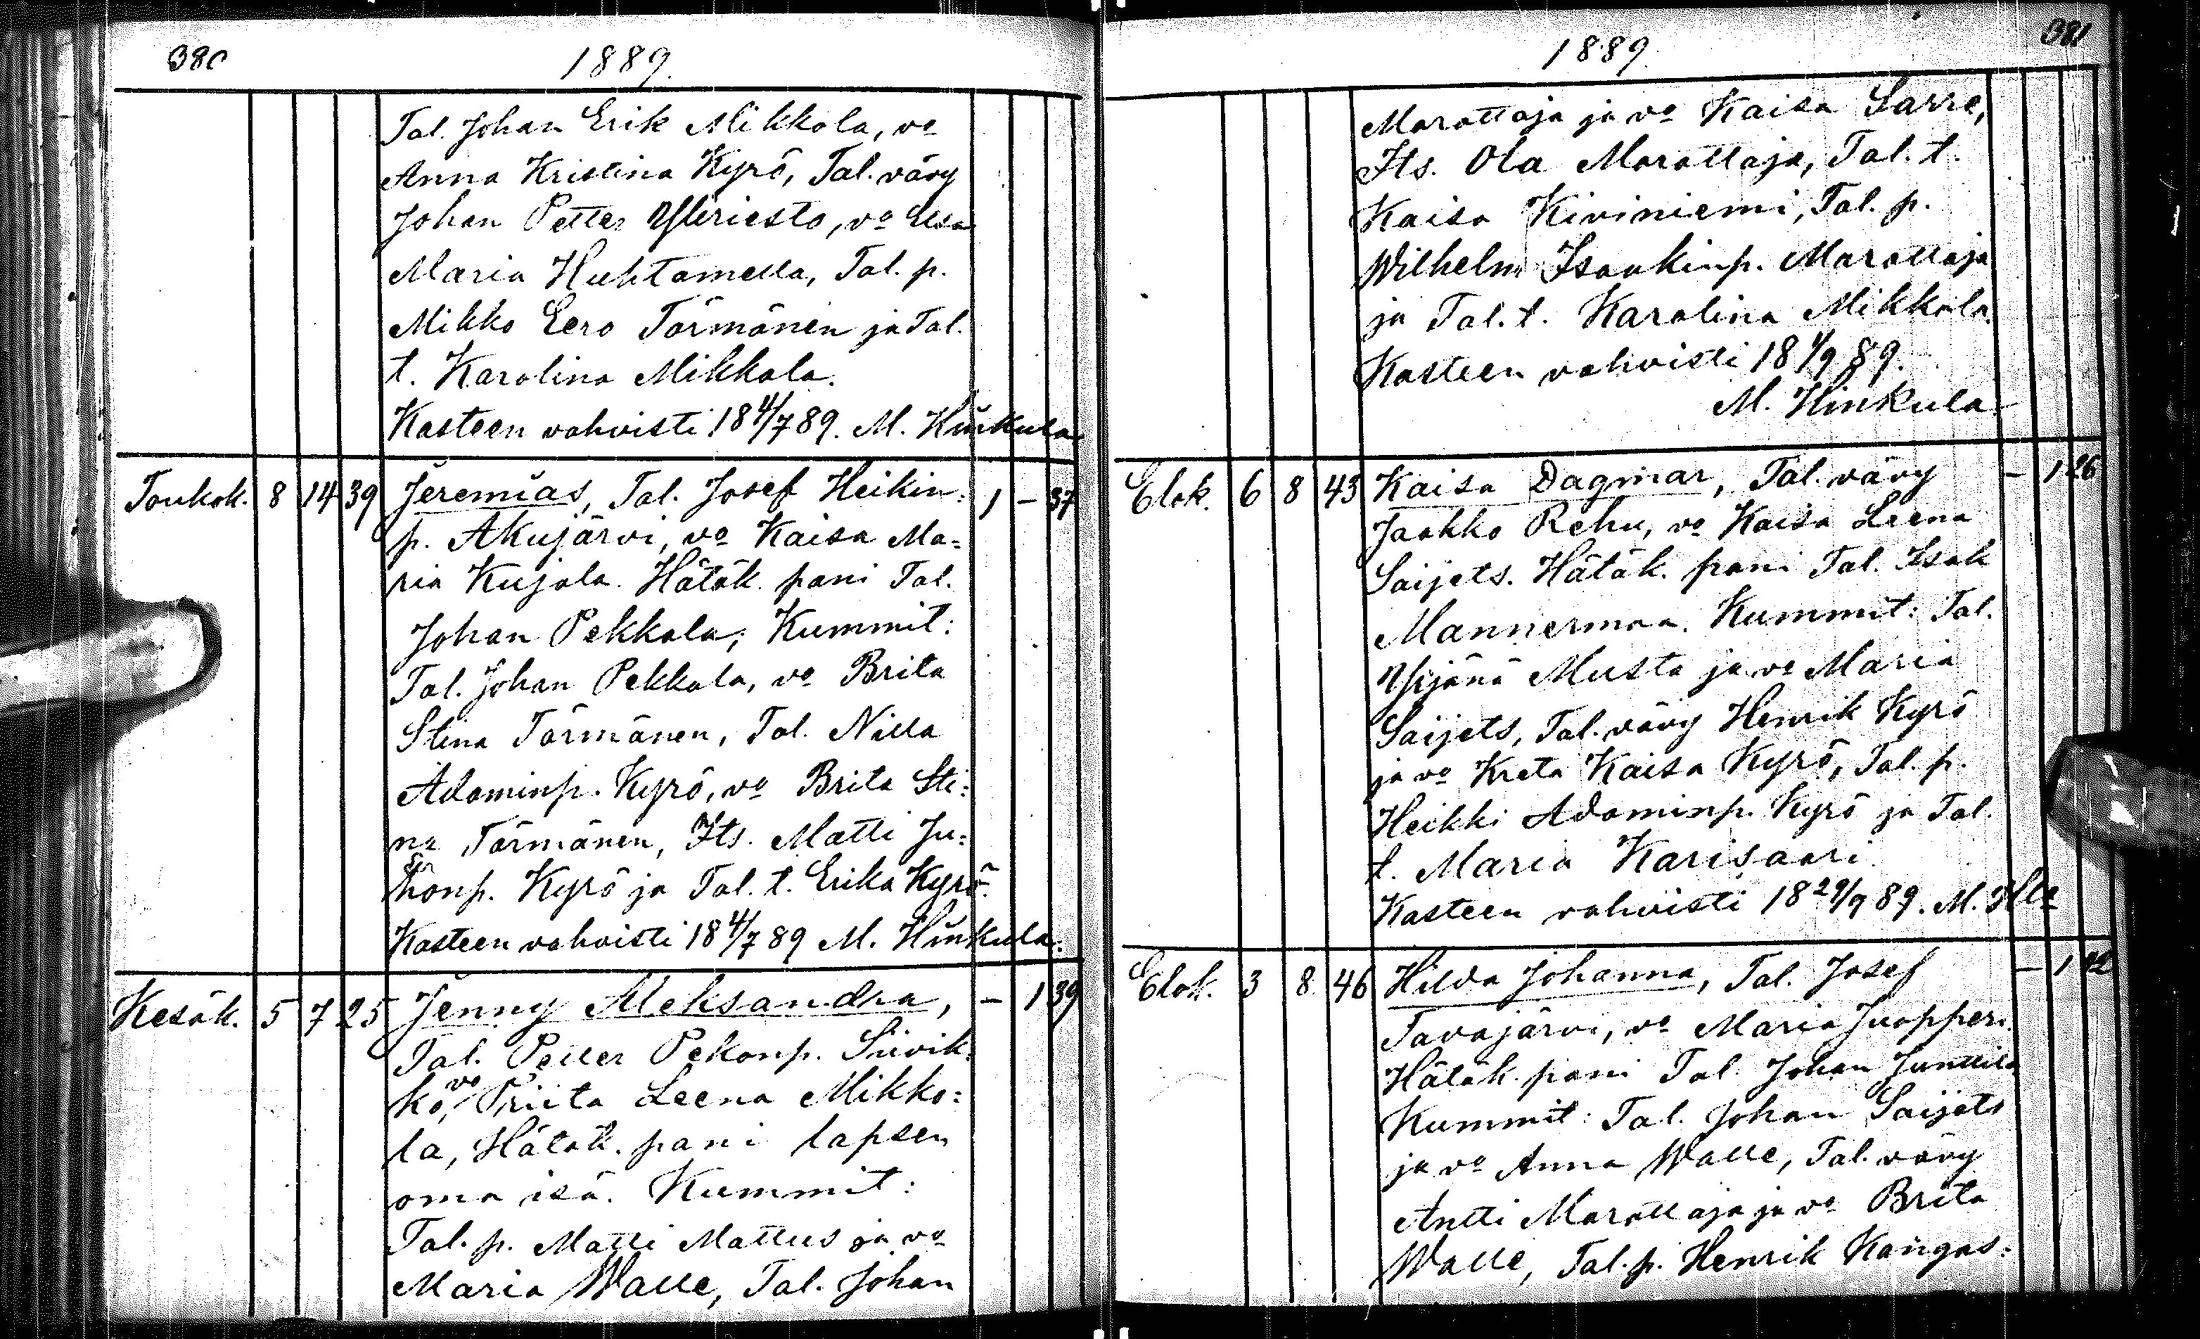 380
1889.
Tal. Johan Erik Mikkola, vo
Anna Kristina Kyrö, Tal. vävy
Johan Petter Yliriesto, vo Elsa
Maria Huhtamella, Tal. p.
Mikko Eero Törmänen ja Tal.
t. Karolina Mikkola.
Kasteen vahvisti 18 4/7 89. M. Hinkula
Toukok. 8 14 39 Jeremias, Tal. Josef Heikin- 1 – 37
p. Akujärvi, vo Kaisa Ma=
ria Kujala. Hätäk. pani Tal.
Johan Pekkala; Kummit:
Tal. Johan Pekkala, vo Brita
Stina Törmänen, Tal. Nilla
Adaminp. Kyrö, vo Brita Sti=
na Törmänen, Its. Matti Ju=
honp. Kyrö ja Tal. t. Erika Kyrö.
Kasteen vahvisti 18 4/7 89 M. Hinkula.
Kesäk. 5 7 25 Jenny Aleksandra, – 1 39
Tal. Petter Pekanp. Siivik=
ko, vo Priita Leena Mikko=
la, Hätäk. pani lapsen
oma isä. Kummit:
Tal. p. Matti Mattus ja vo
Maria Walle, Tal. Johan
381
1889.
Morottaja ja vo Kaisa Sarre,
Its. Ola Morottaja, Tal. t.
Kaisa Kiviniemi, Tal. p.
Wilhelm Isaakinp. Morottaja
ja Tal. t. Karolina Mikkola.
Kasteen vahvisti 18 1/9 89.
M. Hinkula.
Elok. 6 8 43 Kaisa Dagmar, Tal. vävy – 1 26
Jaakko Rehu, vo Kaisa Leena
Saijets. Hätäk. pani Tal. Isak
Mannermaa. Kummit: Tal.
Yrjänä Musta ja vo Maria
Saijets, Tal. vävy Henrik Kyrö
ja vo Kreta Kaisa Kyrö, Tal. p.
Heikki Adaminp. Kyrö ja Tal.
t. Maria Karisaari.
Kasteen vahvisti 18 29/9 89. M.
Elok. 3 8 46 Hilda Johanna, Tal. Josef – 1 42
Tavajärvi, vo Maria Juopperi.
Hätäk. pani Tal. Johan Junttila
Kummit: Tal. Johan Saijets
ja vo Anna Walle, Tal. vävy
Antti Morottaja ja vo Brita
Walle, Tal. p. Henrik Kangas=